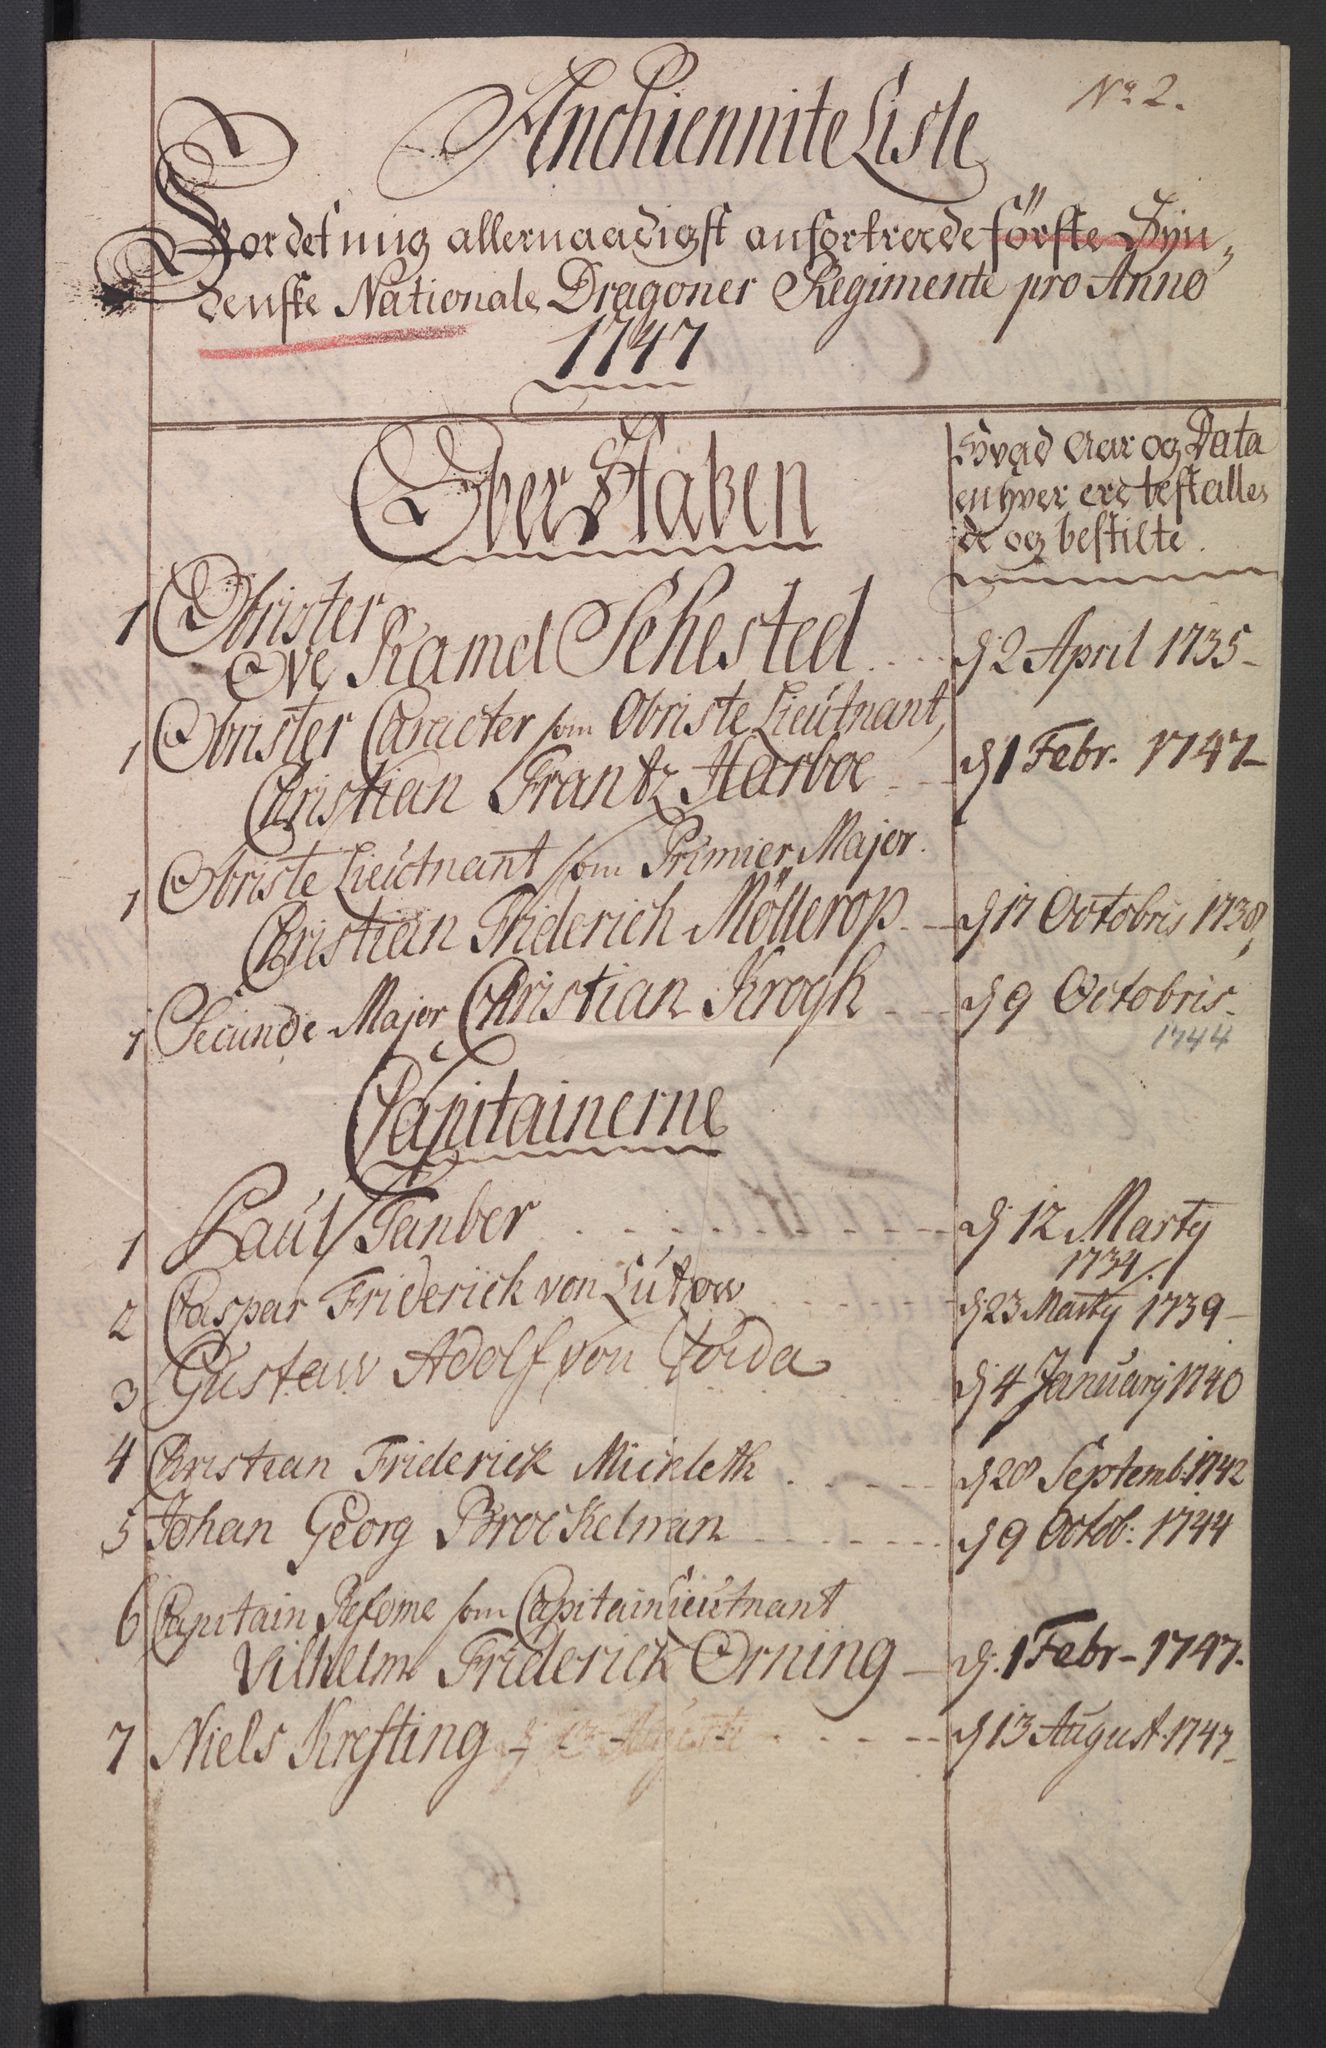 No 2.
Anchiennite Liste
For det mig allernaadigst anfortroede förste Syn„
denfke Nationale Dragoner Regimente pro Anno
1747
Ober Staben
Hvad Aar og Data
enhver ere bestalle,
de og bestilte.
1 Obrister
Ove Ramel Sehested .... d 2 April 1735-
1 Obrister Caracter som Obriste Lieutnant,
Christian Frantz Harboe ... d 1 Febr. 1747-
1 Obriste Lieutnant som Primier Major.
Christian Friderich Möllerop. d 17 Octobris 1738,
1 Secunde Major Christian Krogh ... d 9 Octobris-
1744
Capitainerne
1 Paul Tanber ..... d 12 Martij
1734.
2 Caspar Friderich von Lützow ..... d 23 Martij 1739-
3 Gustaw Adolf von ... d 4 Januarij 1740
4 Christian Friderick Mickleth ..... d 28 Septemb: 1742
5 Johan Georg Brockelman ..... d 9 Octob: 1744
6 Capitain Refome som Capitain Lieutnant
Vilhelm Friderick Orning - d. 1 Febr- 1747.
7 Niels Krefting d 13 Augusti .... d 13 August. 1747-